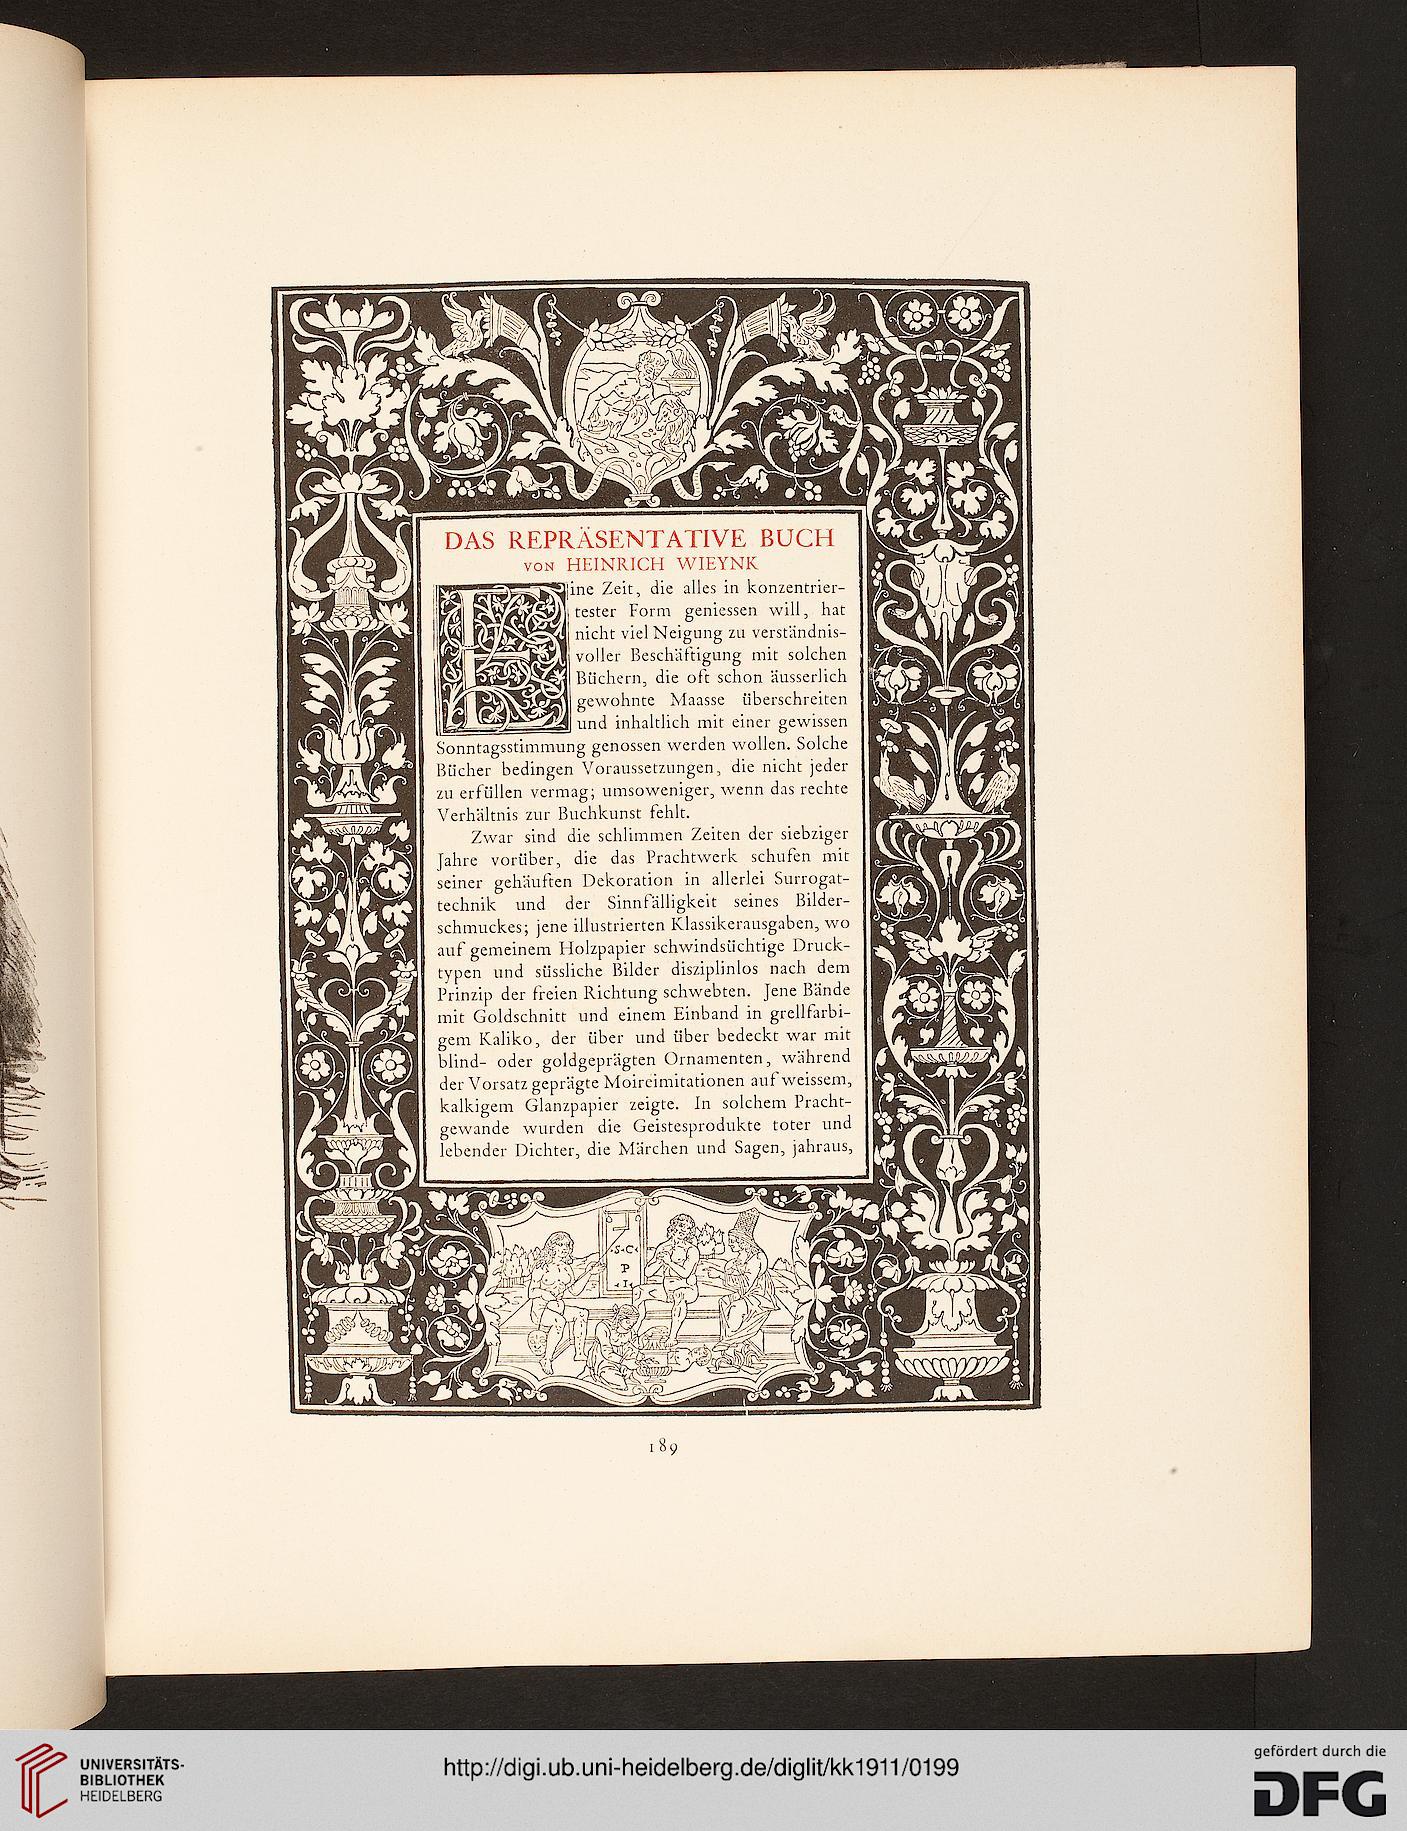 DAS REPRÄSENTATIVE BUCH
VON HEINRICH WIEYNK
Eine Zeit, die alles in konzentrier-
tester Form geniessen will, hat
nicht viel Neigung zu verständnis-
voller Beschäftigung mit solchen
Büchern, die oft schon äusserlich
gewohnte Maasse überschreiten
und inhaltlich mit einer gewissen
Sonntagsstimmung genossen werden wollen. Solche
Bücher bedingen Voraussetzungen, die nicht jeder
zu erfüllen vermag; umsoweniger, wenn das rechte
Verhältnis zur Buchkunst fehlt.
Zwar sind die schlimmen Zeiten der siebziger
Jahre vorüber, die das Prachtwerk schufen mit
seiner gehäuften Dekoration in allerlei Surrogat-
technik und der Sinnfälligkeit seines Bilder-
schmuckes; jene illustrierten Klassikerausgaben, wo
auf gemeinem Holzpapier schwindsüchtige Druck-
typen und süssliche Bilder disziplinlos nach dem
Prinzip der freien Richtung schwebten. Jene Bände
mit Goldschnitt und einem Einband in grellfarbi-
gem Kaliko, der über und über bedeckt war mit
blind- oder goldgeprägten Ornamenten, während
der Vorsatz geprägte Moireimitationen auf weissem,
kalkigem Glanzpapier zeigte. In solchem Pracht-
gewande wurden die Geistesprodukte toter und
lebender Dichter, die Märchen und Sagen, jahraus,
·S·C·
P
·I·
189
UNIVERSITÄTS-
BIBLIOTHEK
HEIDELBERG
http://digi.ub.uni-heidelberg.de/diglit/kk1911/0199
gefördert durch die
DFG